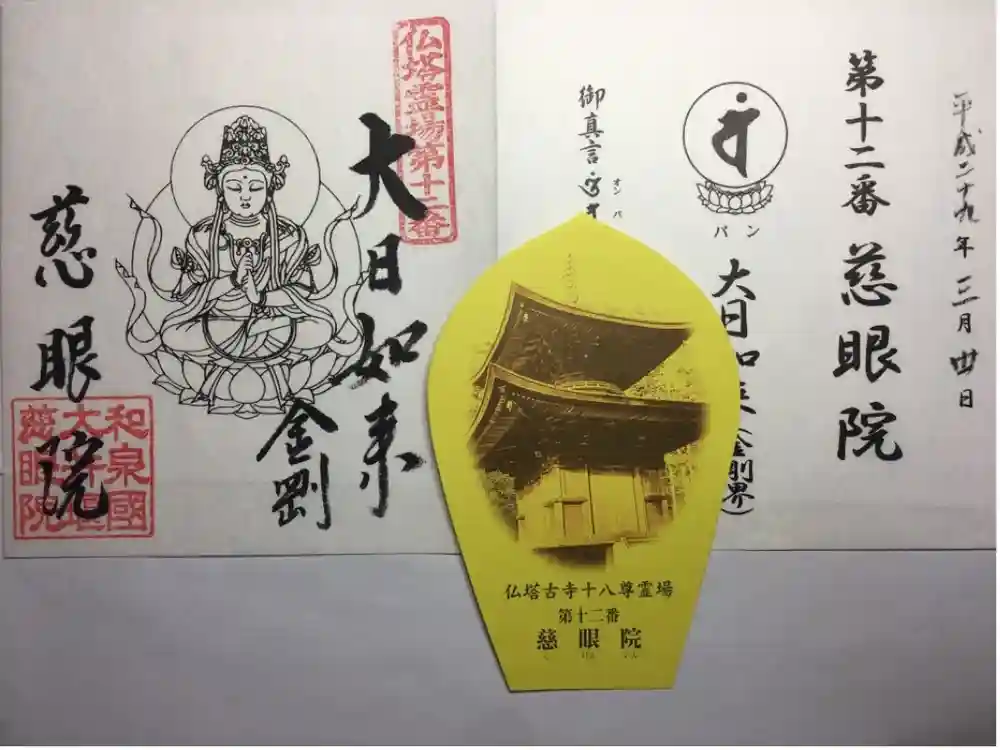 平成二十九年三月四日
第十二番 慈眼院
バン
大日如来(金剛界)
御真言
オン バ
仏塔霊場第十二番
大日如来
金剛
慈眼院
和泉國
慈眼院
仏塔古寺十八尊霊場
第十二番
慈眼院
じ げん いん